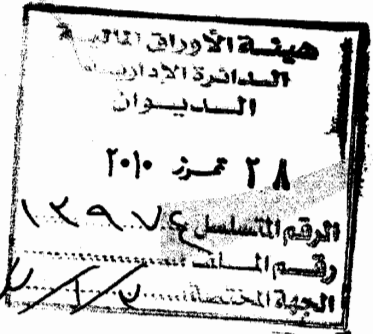 هيئة الأوراق المالية
الدائرة الإدارية
الديوان
٢٨ تموز ٢٠١٠
الرقم المتسلسل ١٢٩٧٤
رقم الملف
الجهة المختصة